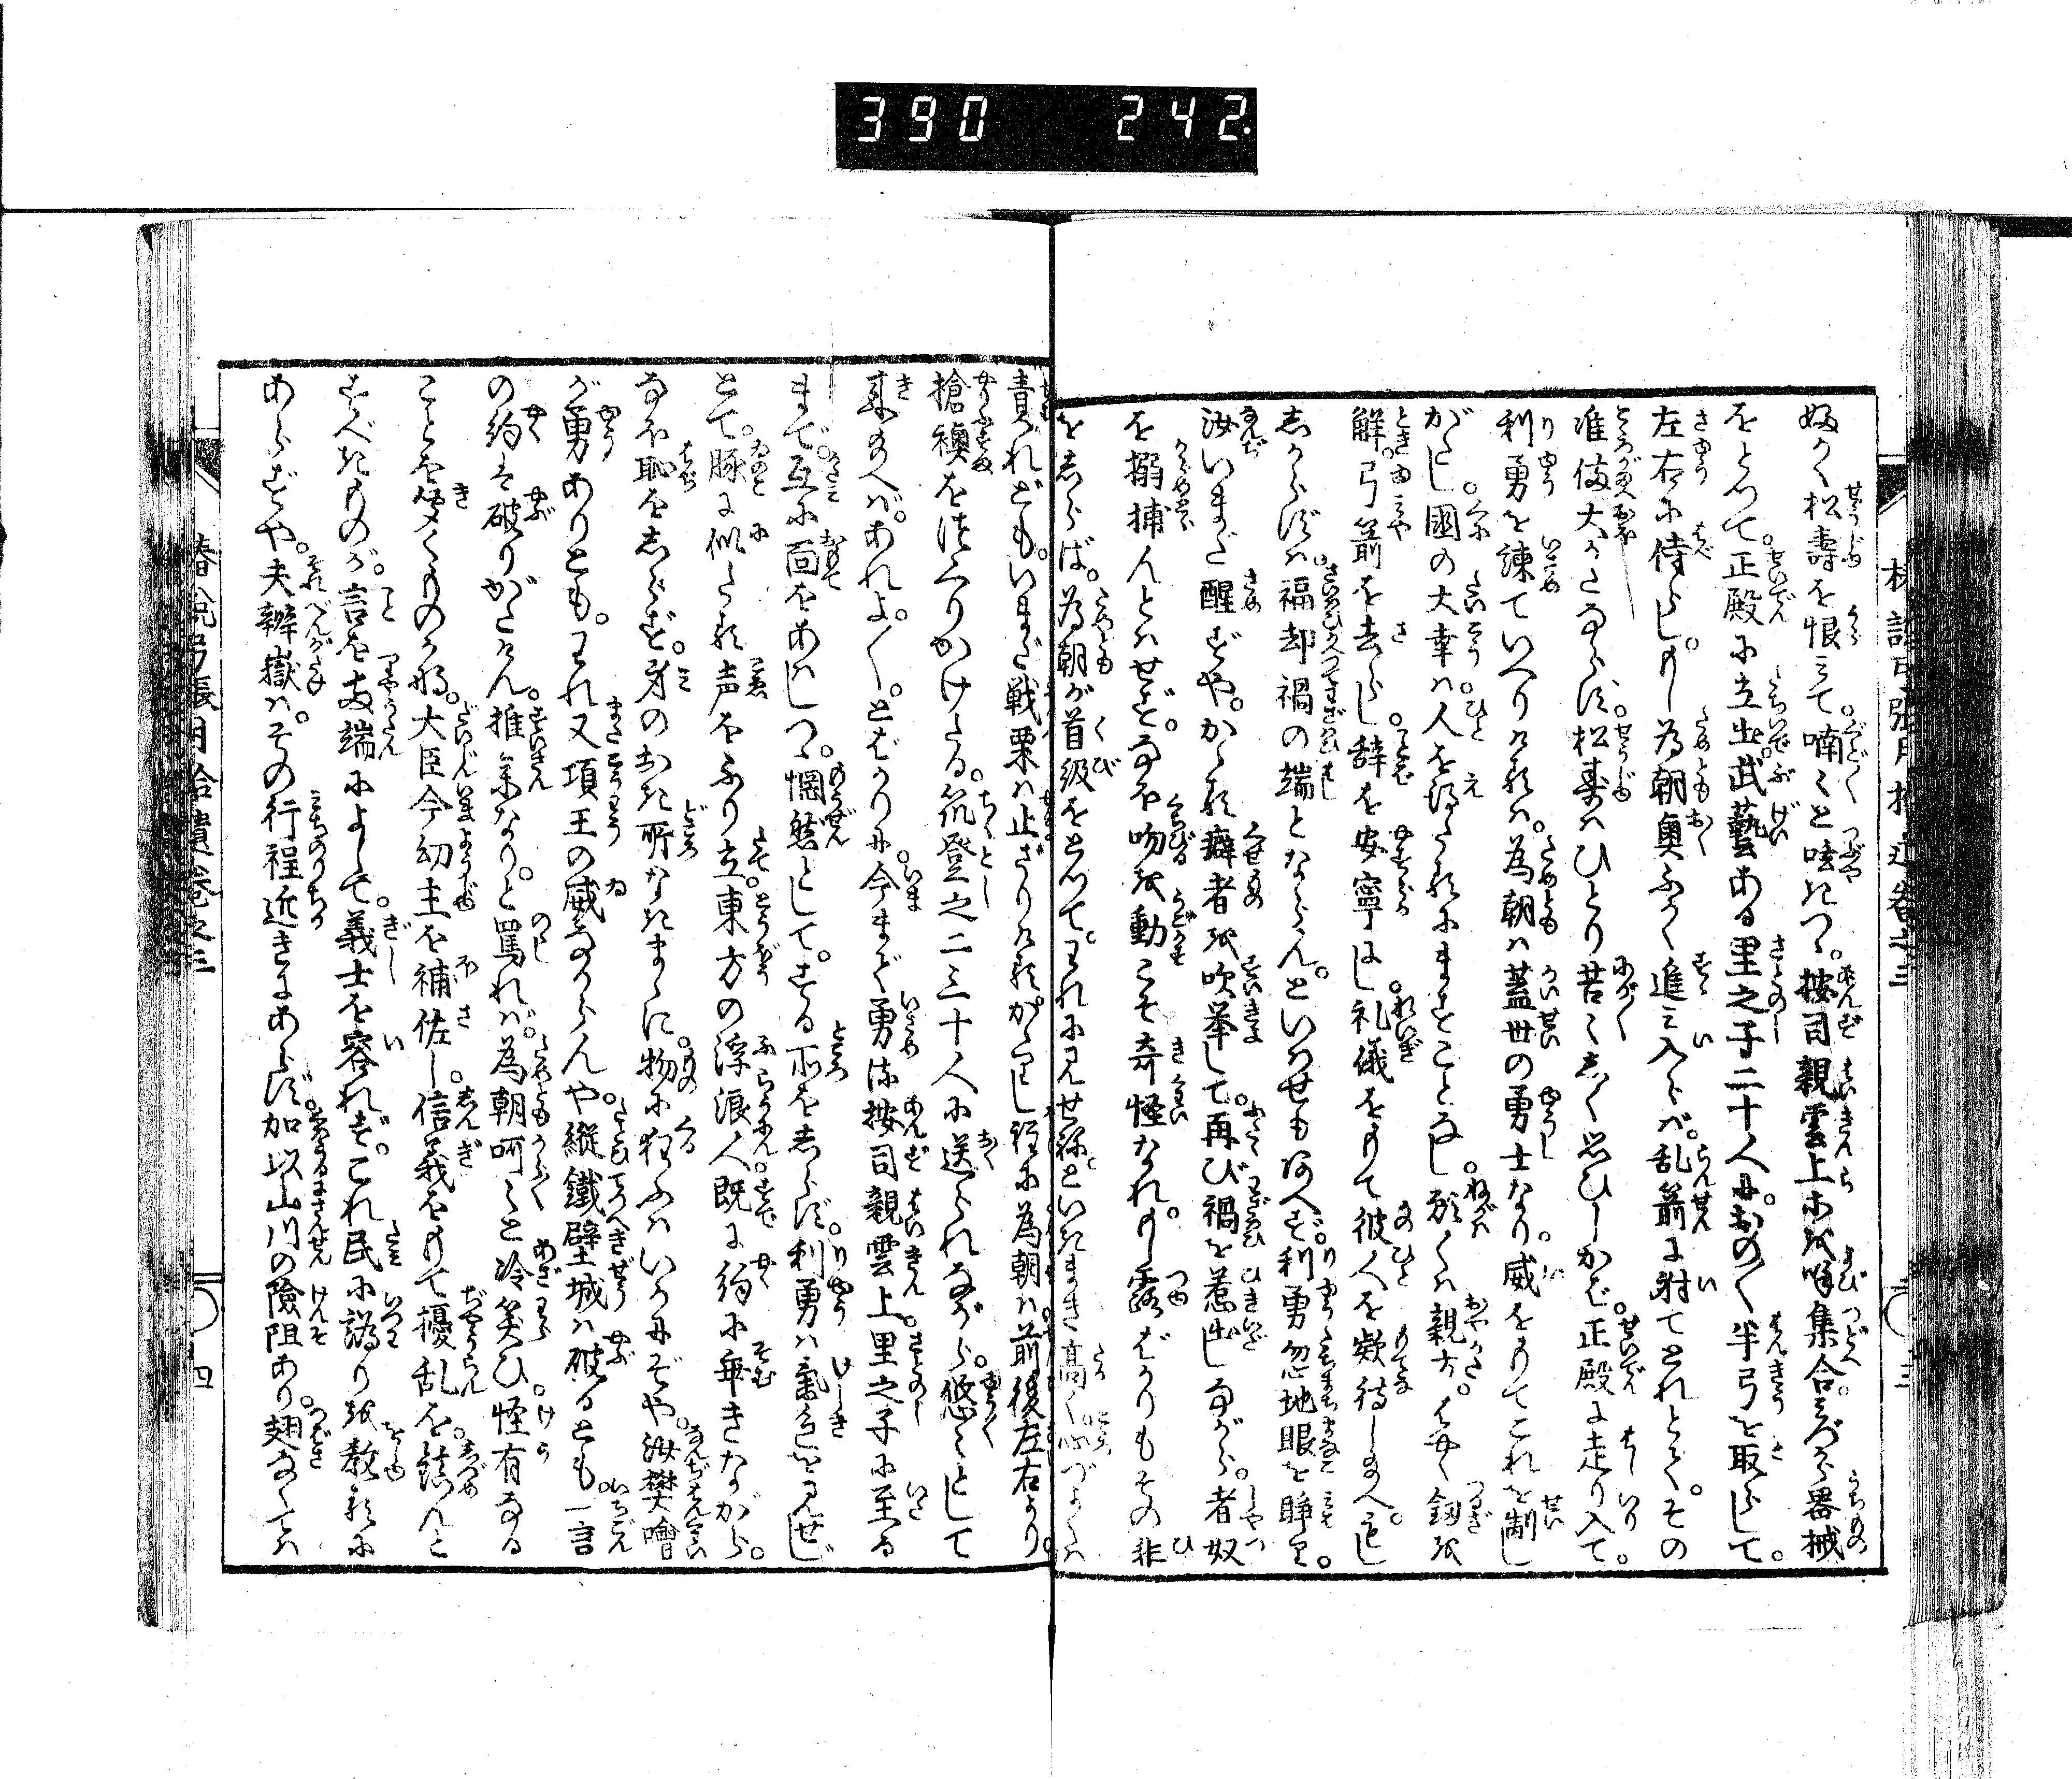 390 242.
ふかく松壽を恨みて。喃〻と呟きつゝ。按司親雲上等を呼集合。みづから器械
をとつて。正殿に立出。武藝ある里之子二十人に。おの〱半弓を取らして。
左右に侍らし。もし為朝奥ふかく進み入らば。乱箭に射てとれとて。その
准備大かたならず。松寿はひとり苦〻しく思ひしかど。正殿に走り入て。
利勇を諫ていへりけるは。為朝は蓋世の勇士なり。威をもてこれを制し
がたし。國の大幸は。人を得たるにますことなし。願くは親方。はやく劔を
解。弓箭を去らし。辞を安寧にし。礼儀をもて彼人を欵待し給へ。もし
しからずは。福却禍の端とならん。といはせもあへず。利勇忽地眼を睜り。
汝いまだ醒ずや。かゝる癖者を吹挙して。再び禍を惹出しながら。者奴
を搦捕んとはせず。なほ吻を動こそ奇怪なれ。もし露ばかりもその非
をしらば。為朝が首級をとつて。われに見せね。といきまき高く。心づよくは
責れども。いまだ戦栗は止ざりけるが。かゝりし程に為朝は。前後左右より
槍襖をつくりかけたる。筑登之二三十人に送られながら。悠〻として
来給へば。あれよ〱。とばかりに。今まで勇める按司親雲上。里之子に至る
まで。互に面をあはしつゝ。惘然として。する所をしらず。利勇は氣色を見せじ
とて。豚に似たる声をふり立。東方の浮浪人。既に約に乖きながら。
なほ恥をしらず。身のおき所なきまゝに。物に狂ふはいかにぞや。汝樊噲
が勇ありとも。われ又項王の威なからんや。縦鐵壁城は破るとも。一言
の約は破りがたけん。推参なり。と罵れば。為朝呵〻と冷笑ひ。怪有なる
ことを聞くものかな。大臣今幼主を補佐し。信義をもて擾乱を。鎮んと
すべきものが。言を両端によして。義士を容れず。これ民に譎りを教るに
あらずや。夫辨嶽は。その行程近きにあらず。加以山川の險阻あり。翅なくては
椿説弓張月拾遺巻之三
三
椿説弓張月拾遺巻之三
四